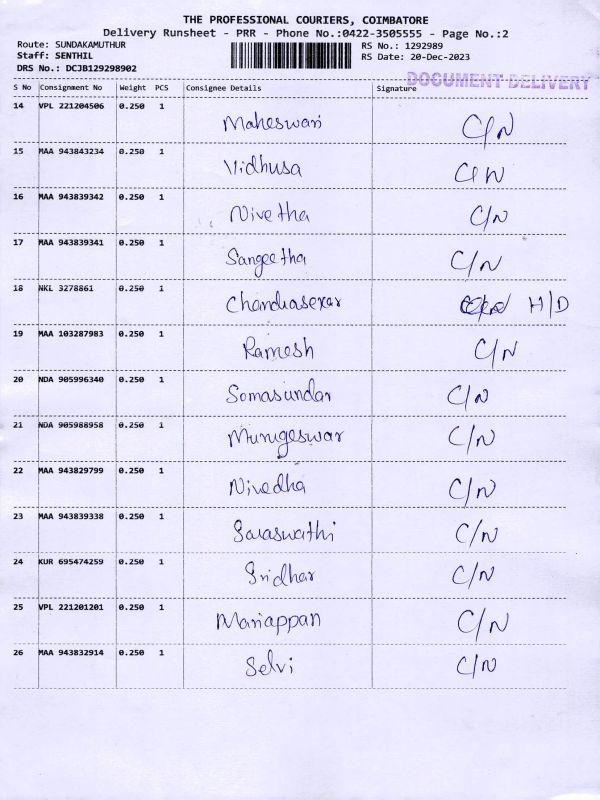 THE PROFESSIONAL COURIERS, COIMBATORE
Delivery Runsheet - PRR - Phone No.:0422-3505555 - Page No.:2
Route: SUNDAKAMUTHUR RS No.: 1292989
Staff: SENTHIL RS Date: 20-Dec-2023
DRS No.: DCJB129298902
DOCUMENT DELIVERY
S No Consignment No Weight PCS Consignee Details Signature
14 VPL 221204506 0.250 1 Maheswari C/N
15 MAA 943843234 0.250 1 Vidhusa C/N
16 MAA 943839342 0.250 1 Nivetha C/N
17 MAA 943839341 0.250 1 Sangeetha C/N
18 NKL 3278861 0.250 1 Chandrasekar H/D
19 MAA 103287983 0.250 1 Ramesh C/N
20 NDA 905996340 0.250 1 Somasundar C/N
21 NDA 905988958 0.250 1 Murugeswar C/N
22 MAA 943829799 0.250 1 Nivedha C/N
23 MAA 943839338 0.250 1 Saraswathi C/N
24 KUR 695474259 0.250 1 Sridhar C/N
25 VPL 221201201 0.250 1 Mariappan C/N
26 MAA 943832914 0.250 1 Selvi C/N